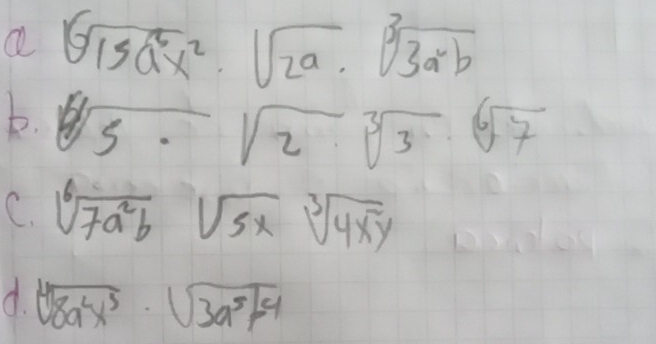 a ⁶√15a³x² · √2a · ³√3a²b
b. √5 · √2 · ³√3 · ⁶√7
c. ⁶√7a²b √5x ³√4x²y
d. ⁴√8a²x³ · √3a⁵